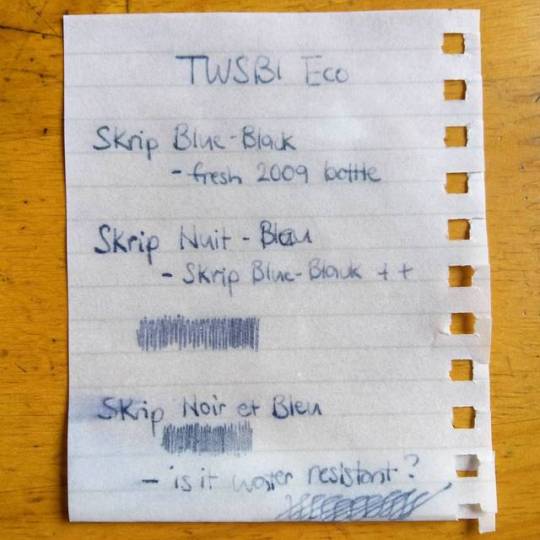 TWSBI Eco
Skrip Blue-Black
- fresh 2009 bottle
Skrip Nuit - Bleu
- Skrip Blue-Black ++
Skrip Noir et Bleu
- is it water resistant?